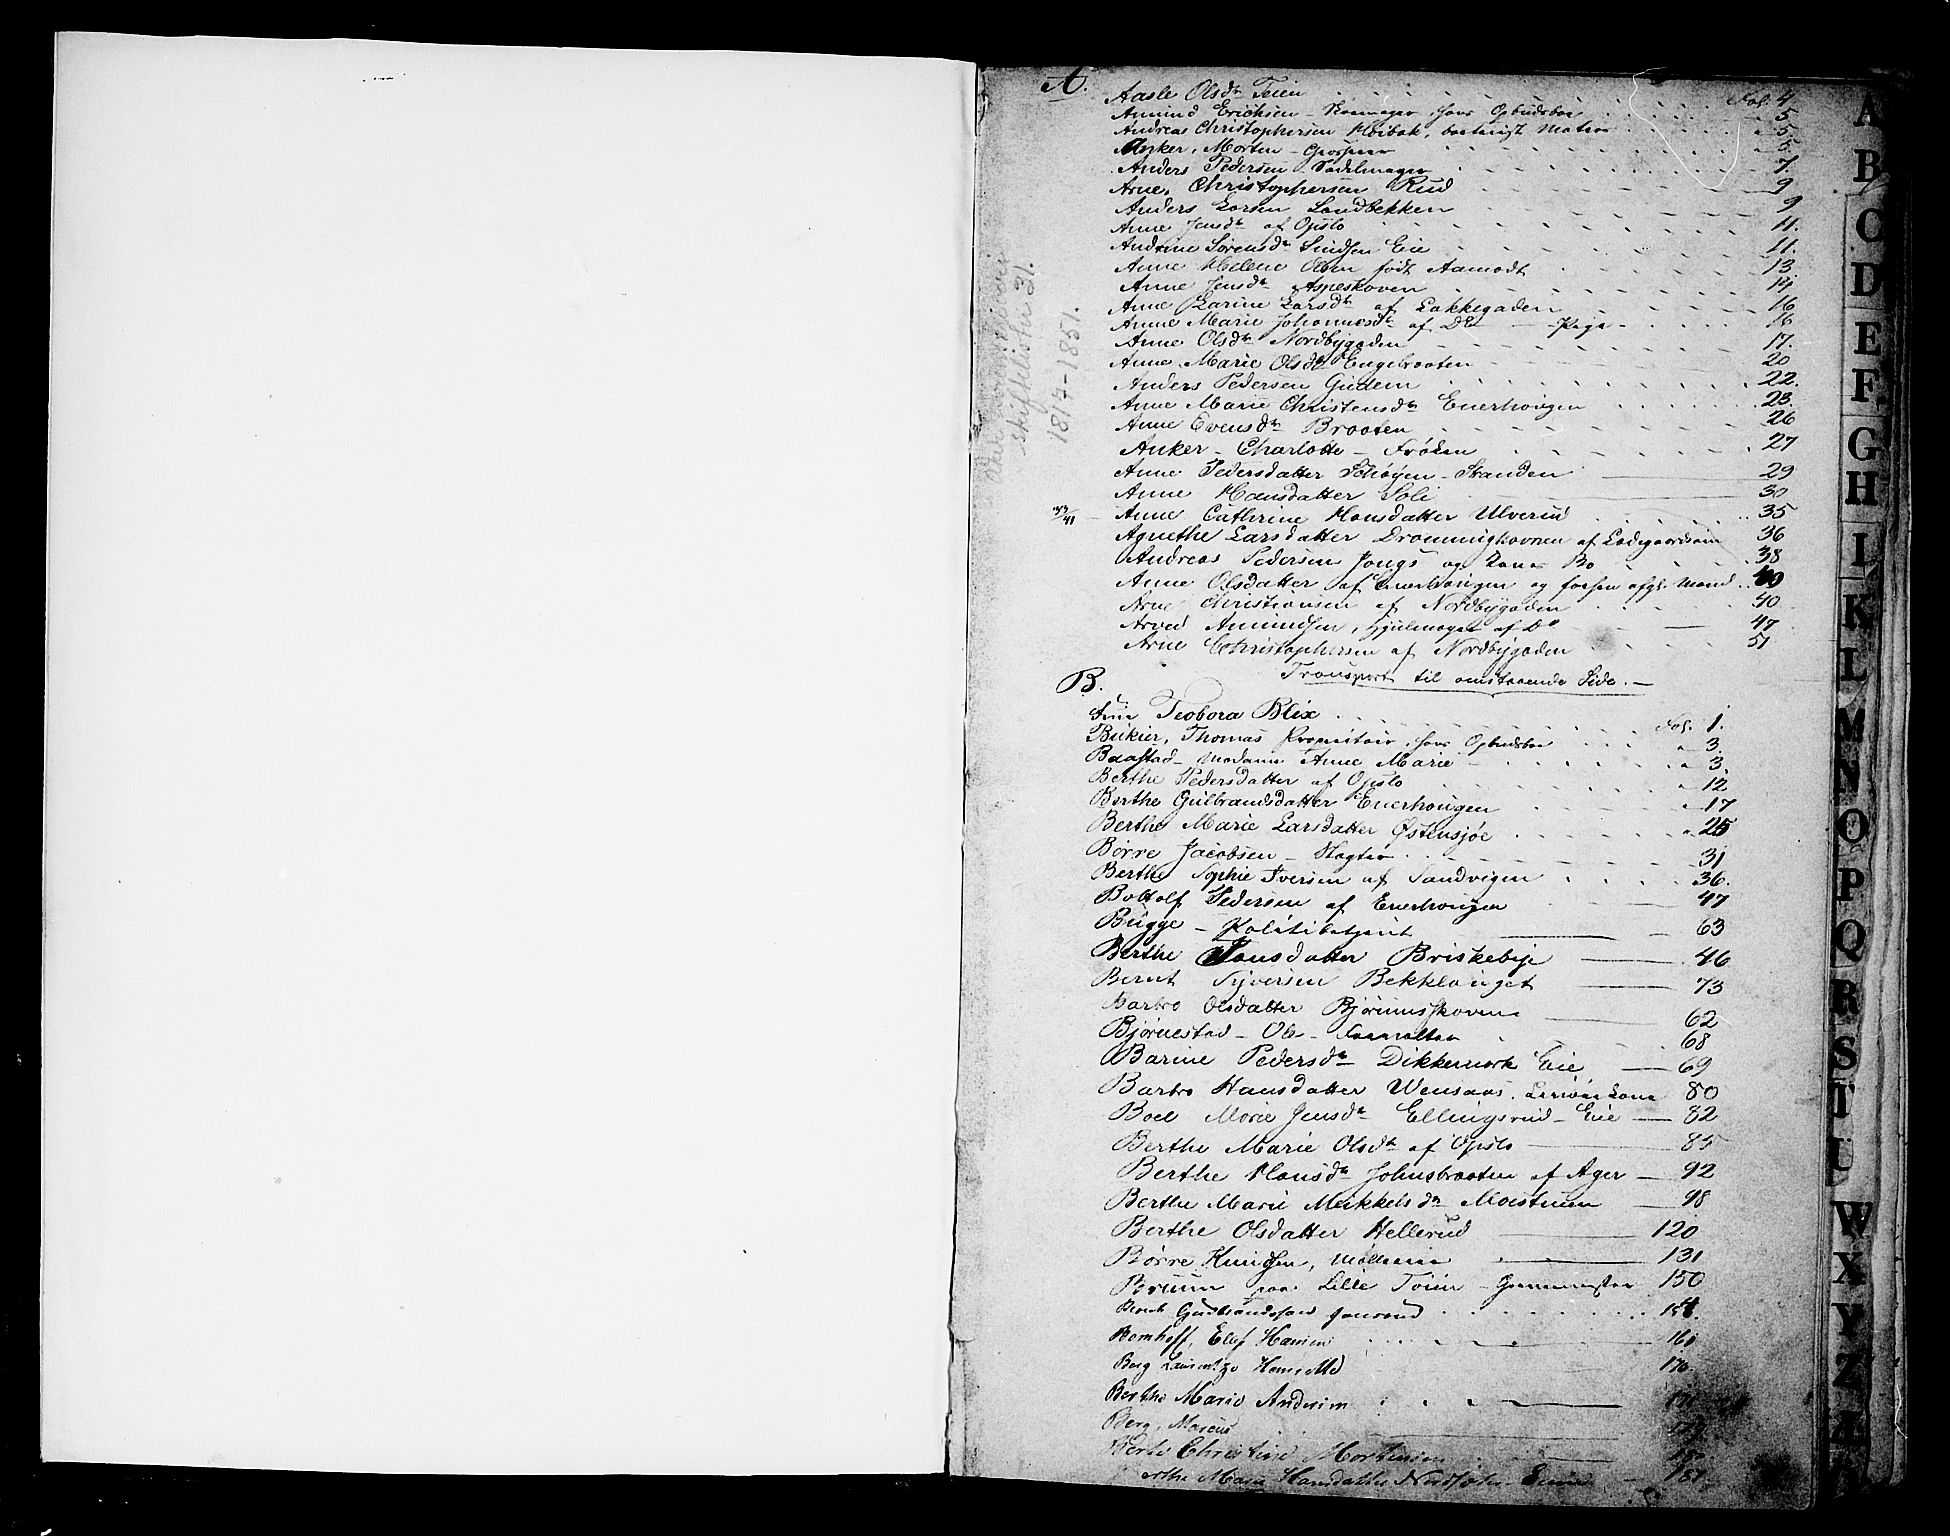 A.
Aasle Olsdtr Teien Fol. 4
Amund Erichsen - hans Opbudsboe " 5
Andreas Christophersen Høibak, " 5.
Anker, Morten - Grosserer " 5
Anders Pedersen Sadelmager 7
Arne Christophersen Rud 9
Anders Larsen Sandbekken 9
Anne Jensdtr af Opslo 11.
Andrine Sørensdtr Sindsen Eie 11.
Anne Helene Olsen født Aamodt 13.
Anne Jensdtr Aspeskoven 14
Anne Karine Larsdtr af Lakkegaden 16
Anne Marie Johannesdtr af Do - Pige - 16
Anne Olsdtr Nordbygaden 17.
Anne Marie Olsdtr Engebraaten 20
Anders Pedersen Gudem 22.
Anne Marie Christensdtr Enerhougen 23.
Anne Evensdtr Braaten 26
Anker - Charlotte - Frøken 27
Anne Pedersdatter Schøyen - Stranden 29
Anne Hansdatter Soli 30
Anne Cathrine Hansdatter Ulverud 35
Agnethe Larsdatter Dronninghavnen af Ladegaardsøen 36
Andreas Pedersen Jongs og Kones Bo 38
Anne Olsdatter af Enerhougen og forhen afg. Mand 40
Arne Christiansen af Nordbygaden 40
Arved Amundsen, Hjulmager af Do 47
Arne Christophersen af Nordbygaden 51
Transport til omstaaende Side. -
B.
Teodora Blix Fol. 1.
Thomas Proprietair, hans Opbudsboe " 3.
Baastad - Madame Anne Marie " 3.
Berthe Pedersdatter af Opslo " 12
Berthe Gulbrandsdatter Enerhougen " 17
Berthe Marie Larsdatter Østensjøe " 25
Børre Jacobsen - Slagter 31
Berthe Sophie Iversen af Sandvigen 36.
Bottolf Pedersen af Enerhougen 47
Bugge - Politibetjent 63
Berthe Hansdatter Briskebye 46
Bernt Syversen Bekkelauget 73
Barbro Olsdatter 62
Bjørnestad - Ole - 68
Barine Pedersdtr Dikkemark Eie 69
Barbro Hansdatter Wensaas. 80
Boel Marie Jensdtr Ellingsrud - Eie 82
Berthe Marie Olsdtr af Opslo 85
Berthe Hansdtr Johnsbraaten af Ager 92
Berthe Marie Mikkelsdtr Moestuen 98
Berthe Olsdatter Hellerud 120
Børre Knudsen, 131
Bruun paa Lille Tøien - 150
Gudbrandssen
Bomhoff, Elef Hansen 161
Berg 170.
Berthe Marie Andersen 171
Berg, Marcus
Berte Christine Mortensen
Marie Hansdatter
skifteliste 31.
1814-1851.
A
B
C
D
E
F
G
H
I
K
L
M
N
O
P
Q
R
S
T
U
W
X
Y
Z
Æ